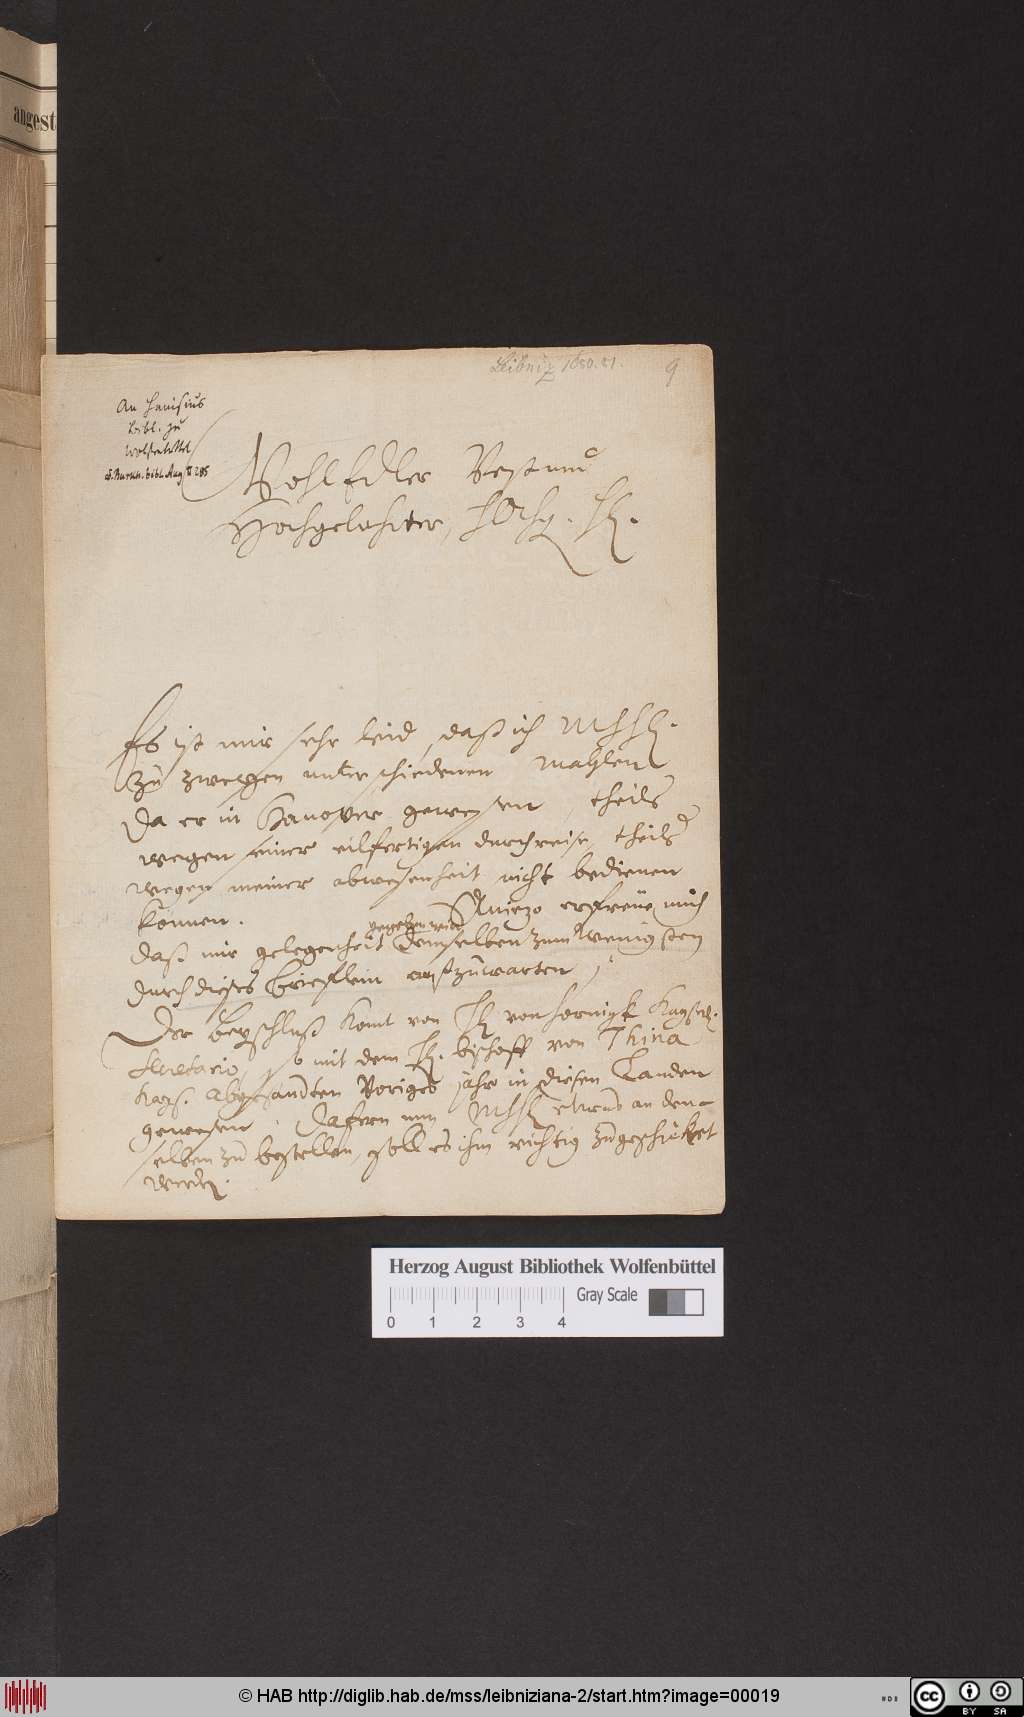 angest
Leibniz 1680.81.
9
An Hanisius
bibl. zu
Wolfenbüttel
Burckh. bibl. Aug. II 285
WohlEdler Vest und
Hochgelahrter, HochgE. H.
Es ist mir sehr leid, daß ich MhH.
zu zweyen unterschiedenen mahlen
da er in Hanover gewesen, theils
wegen seiner eilfertigen durchreise, theils
wegen meiner abwesenheit nicht bedienen
können. Aniezo erfreüe mich
gegeben wird
daß mir gelegenheit demselben zum wenigsten
durch dieses brieflein aufzuwarten
Der beyschluß komt von H. von Hörnigk Kayserl.
Secretario, so mit dem H. bischoff von Thina
Kays. abgesandten Voriges jahr in diesen Landen
gewesen. Dafern nun MhH etwas an den-
selben zu bestellen, soll es ihm richtig zugeschicket
werden.
Herzog August Bibliothek Wolfenbüttel
Gray Scale
0 1 2 3 4
© HAB http://diglib.hab.de/mss/leibniziana-2/start.htm?image=00019
HAB
cc BY SA